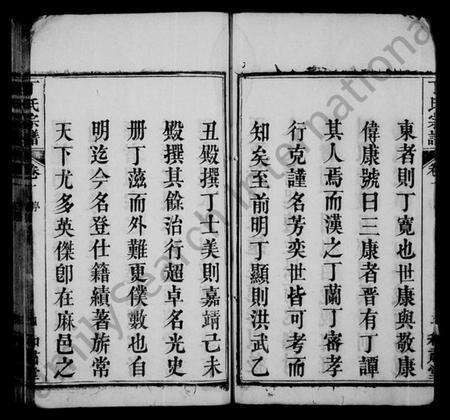 東者則丁寬也世康與敬康
偉康號曰三康者晉有丁譚
其人焉而漢之丁蘭丁審孝
行克謹名芳奕世皆可考而
知矣至前明丁顯則洪武乙
丑殿撰丁士美則嘉靖己未
殿撰其餘治行超卓名光史
冊丁茲而外難更僕數也自
明迄今名登仕籍績著旂常
天下尤多英傑卽在麻邑之
丁氏宗譜 卷
FamilySearch International